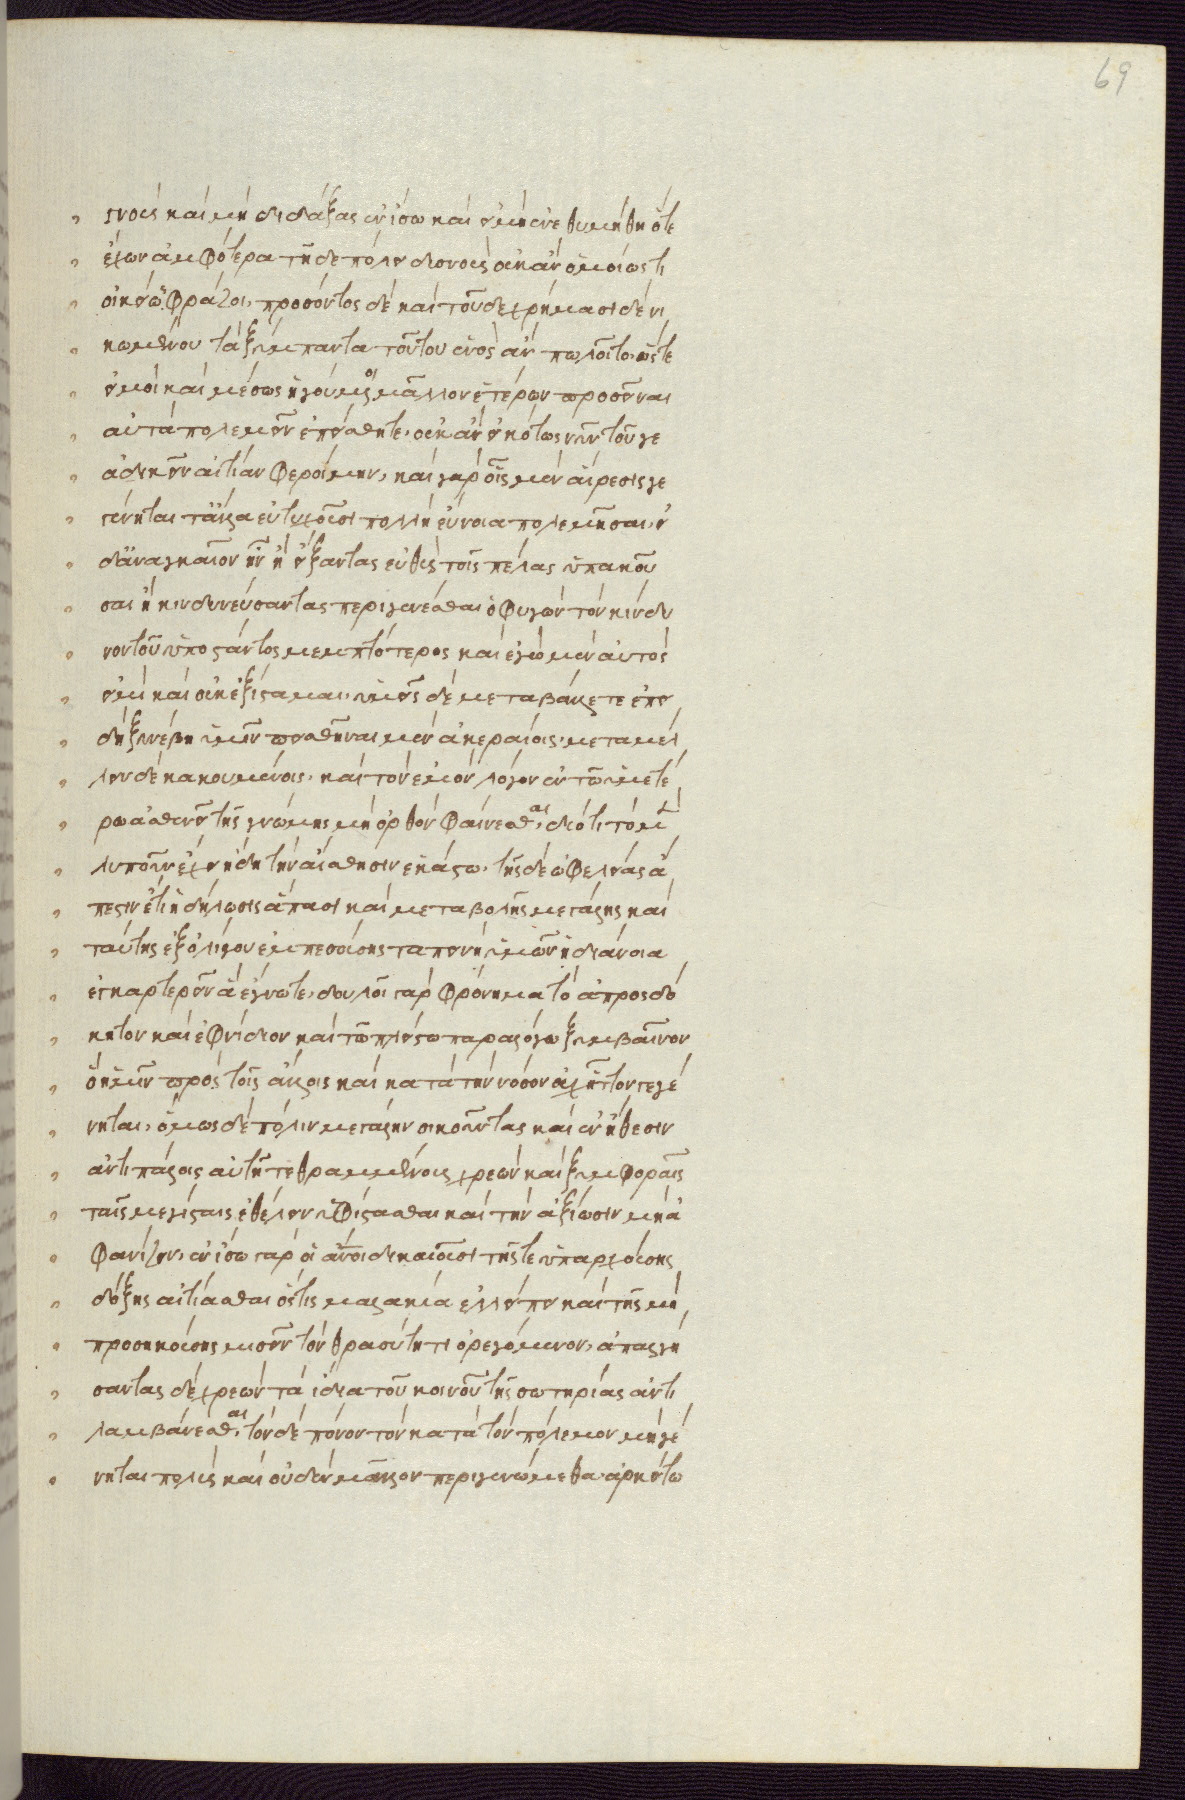 69
γνοὺς καὶ μὴ διδάξας ἐν ἴσω καὶ εἰ μὴ ἐνεθυμήθη ὅτε
ἔχων ἀμφότερα τῇ δὲ πόλει δύσνους οὐκ ἂν ὁμοίως τι
οἰκείω φράζοι, προσόντος δὲ καὶ τοῦδε χρήμασι δὲ νι
κωμένου τὰ ξύμπαντα τούτου ἑνὸς ἂν πωλοῖτο, ὥστε
εἴ μοι καὶ μέσως ἡγούμενοι μᾶλλον ἑτέρων προσεῖναι
αὐτὰ πολεμεῖν ἐπείσθητε, οὐκ ἂν εἰκότως νῦν τοῦ γε
ἀδικεῖν αἰτίαν φεροίμην, καὶ γὰρ οἷς μὲν αἵρεσις γε
γένηται τἄλλα εὐτυχοῦσι πολλὴ εὔνοια πολεμῆσαι, εἰ
δ' ἀναγκαῖον ἦν ἢ εἴξαντας εὐθὺς τοῖς πέλας ὑπακοῦ
σαι ἢ κινδυνεύσαντας περιγενέσθαι ὁ φυγὼν τὸν κίνδυ
νον τοῦ ὑποστάντος μεμπτότερος καὶ ἐγὼ μὲν αὐτός
εἰμι καὶ οὐκ ἐξίσταμαι, ὑμεῖς δὲ μεταβάλλετε ἐπει
δὴ ξυνέβη ὑμῖν πεισθῆναι μὲν ἀκεραίοις, μεταμέλ
λειν δὲ κακουμένοις, καὶ τὸν ἐμὸν λόγον ἐν τῶ ὑμετέ
ρω ἀσθενεῖ τῆς γνώμης μὴ ὀρθὸν φαίνεσθαι, διότι τὸ μὲν
λυποῦν ἔχει ἤδη τὴν αἴσθησιν ἑκάστω, τῆς δὲ ὠφελείας ἄ
πεστιν ἔτι ἡ δήλωσις ἅπασι καὶ μεταβολῆς μεγάλης καὶ
ταύτης ἐξ ὀλίγου ἐμπεσούσης ταπεινὴ ὑμῶν ἡ διάνοια
ἐγκαρτερεῖν ἃ ἔγνωτε, δουλοῖ γὰρ φρόνημα τὸ ἀπροσδό
κητον καὶ ἐφνίδιον καὶ τῶ πλείστω παραλόγω ξυμβαῖνον
ὃ ἡμῖν πρὸς τοῖς ἄλλοις καὶ κατὰ τὴν νόσον οὐχ ἥκιστον γεγέ
νηται, ὅμως δὲ πόλιν μεγάλην οἰκοῦντας καὶ ἐν ἤθεσιν
ἀντιπάλοις αὐτῇ τεθραμμένοις χρεὼν καὶ ξυμφοραῖς
ταῖς μεγίσταις ἐθέλειν ὑφίστασθαι καὶ τὴν ἀξίωσιν μὴ ἀ
φανίζειν, ἐν ἴσω γὰρ οἱ ἄνοι δικαιοῦσι τῆς τε ὑπαρχούσης
δόξης αἰτιᾶσθαι ὅστις μαλακία ἐλλείπει καὶ τῆς μὴ
προσηκούσης μισεῖν τὸν θρασύτητι ὀρεγόμενον, ἀπαλγή
σαντας δὲ χρεὼν τὰ ἴδια τοῦ κοινοῦ τῆς σωτηρίας ἀντι
λαμβάνεσθαι, τὸν δὲ πόνον τὸν κατὰ τὸν πόλεμον μὴ γέ
νηται πολὺς καὶ οὐδὲν μᾶλλον περιγενώμεθα ἀρκείτω